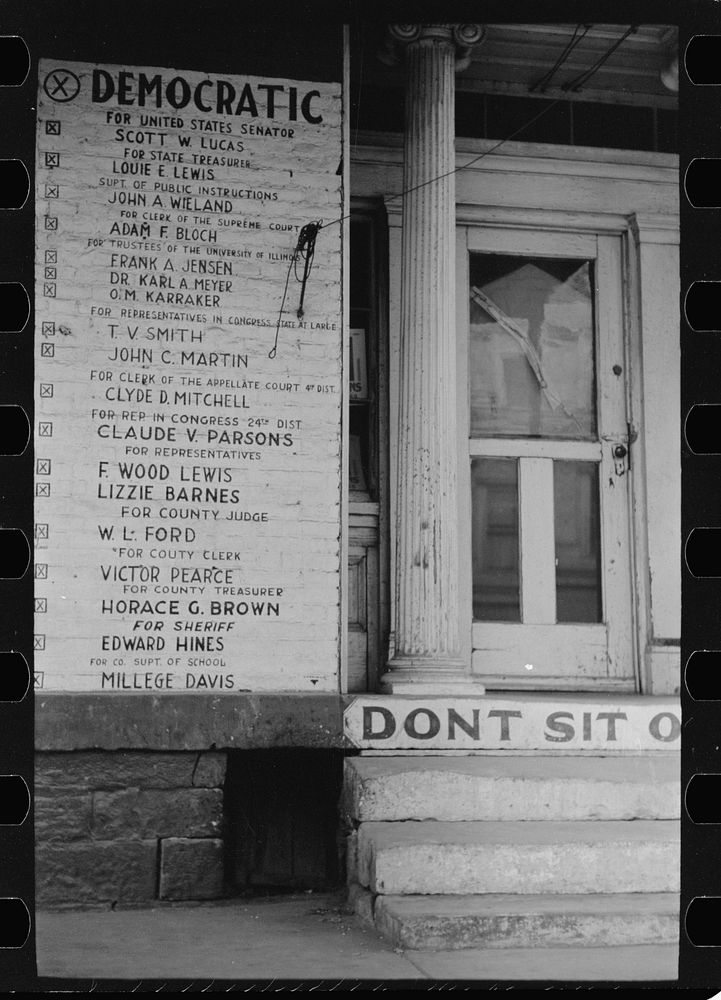 DEMOCRATIC
FOR UNITED STATES SENATOR
SCOTT W. LUCAS
FOR STATE TREASURER
LOUIE E. LEWIS
SUPT. OF PUBLIC INSTRUCTIONS
JOHN A. WIELAND
FOR CLERK OF THE SUPREME COURT
ADAM F. BLOCH
FOR TRUSTEES OF THE UNIVERSITY OF ILLINOIS
FRANK A. JENSEN
DR. KARL A. MEYER
O. M. KARRAKER
FOR REPRESENTATIVES IN CONGRESS STATE AT LARGE
T. V. SMITH
JOHN C. MARTIN
FOR CLERK OF THE APPELLATE COURT 4TH DIST.
CLYDE D. MITCHELL
FOR REP. IN CONGRESS 24TH DIST
CLAUDE V. PARSONS
FOR REPRESENTATIVES
F. WOOD LEWIS
LIZZIE BARNES
FOR COUNTY JUDGE
W. L. FORD
FOR COUTY CLERK
VICTOR PEARCE
FOR COUNTY TREASURER
HORACE G. BROWN
FOR SHERIFF
EDWARD HINES
FOR CO. SUPT. OF SCHOOL
MILLEGE DAVIS
DONT SIT O